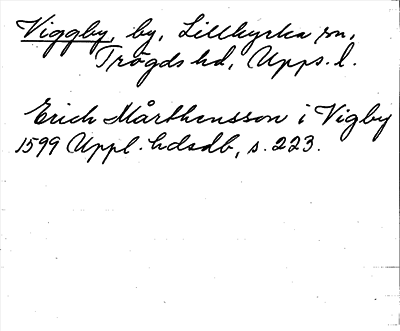 Viggby, by, Lillkyrka sn,
Trögds hd, Upps. l.
Erich Mårthensson i Vigby
1599 Uppl. hdsdb, s. 223.